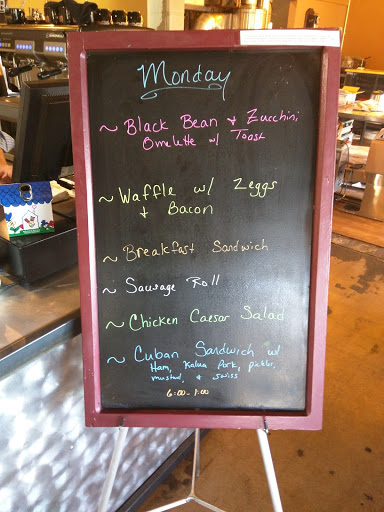 Monday
~ Black Bean & Zucchini
Omelette w/ Toast
~ Waffle w/ Zeggs
& Bacon
~ Breakfast Sandwich
~ Sausage Roll
~ Chicken Caesar Salad
~ Cuban Sandwich w/
Ham, Kalua Pork, pickles,
mustard, & swiss
6:00-1:00